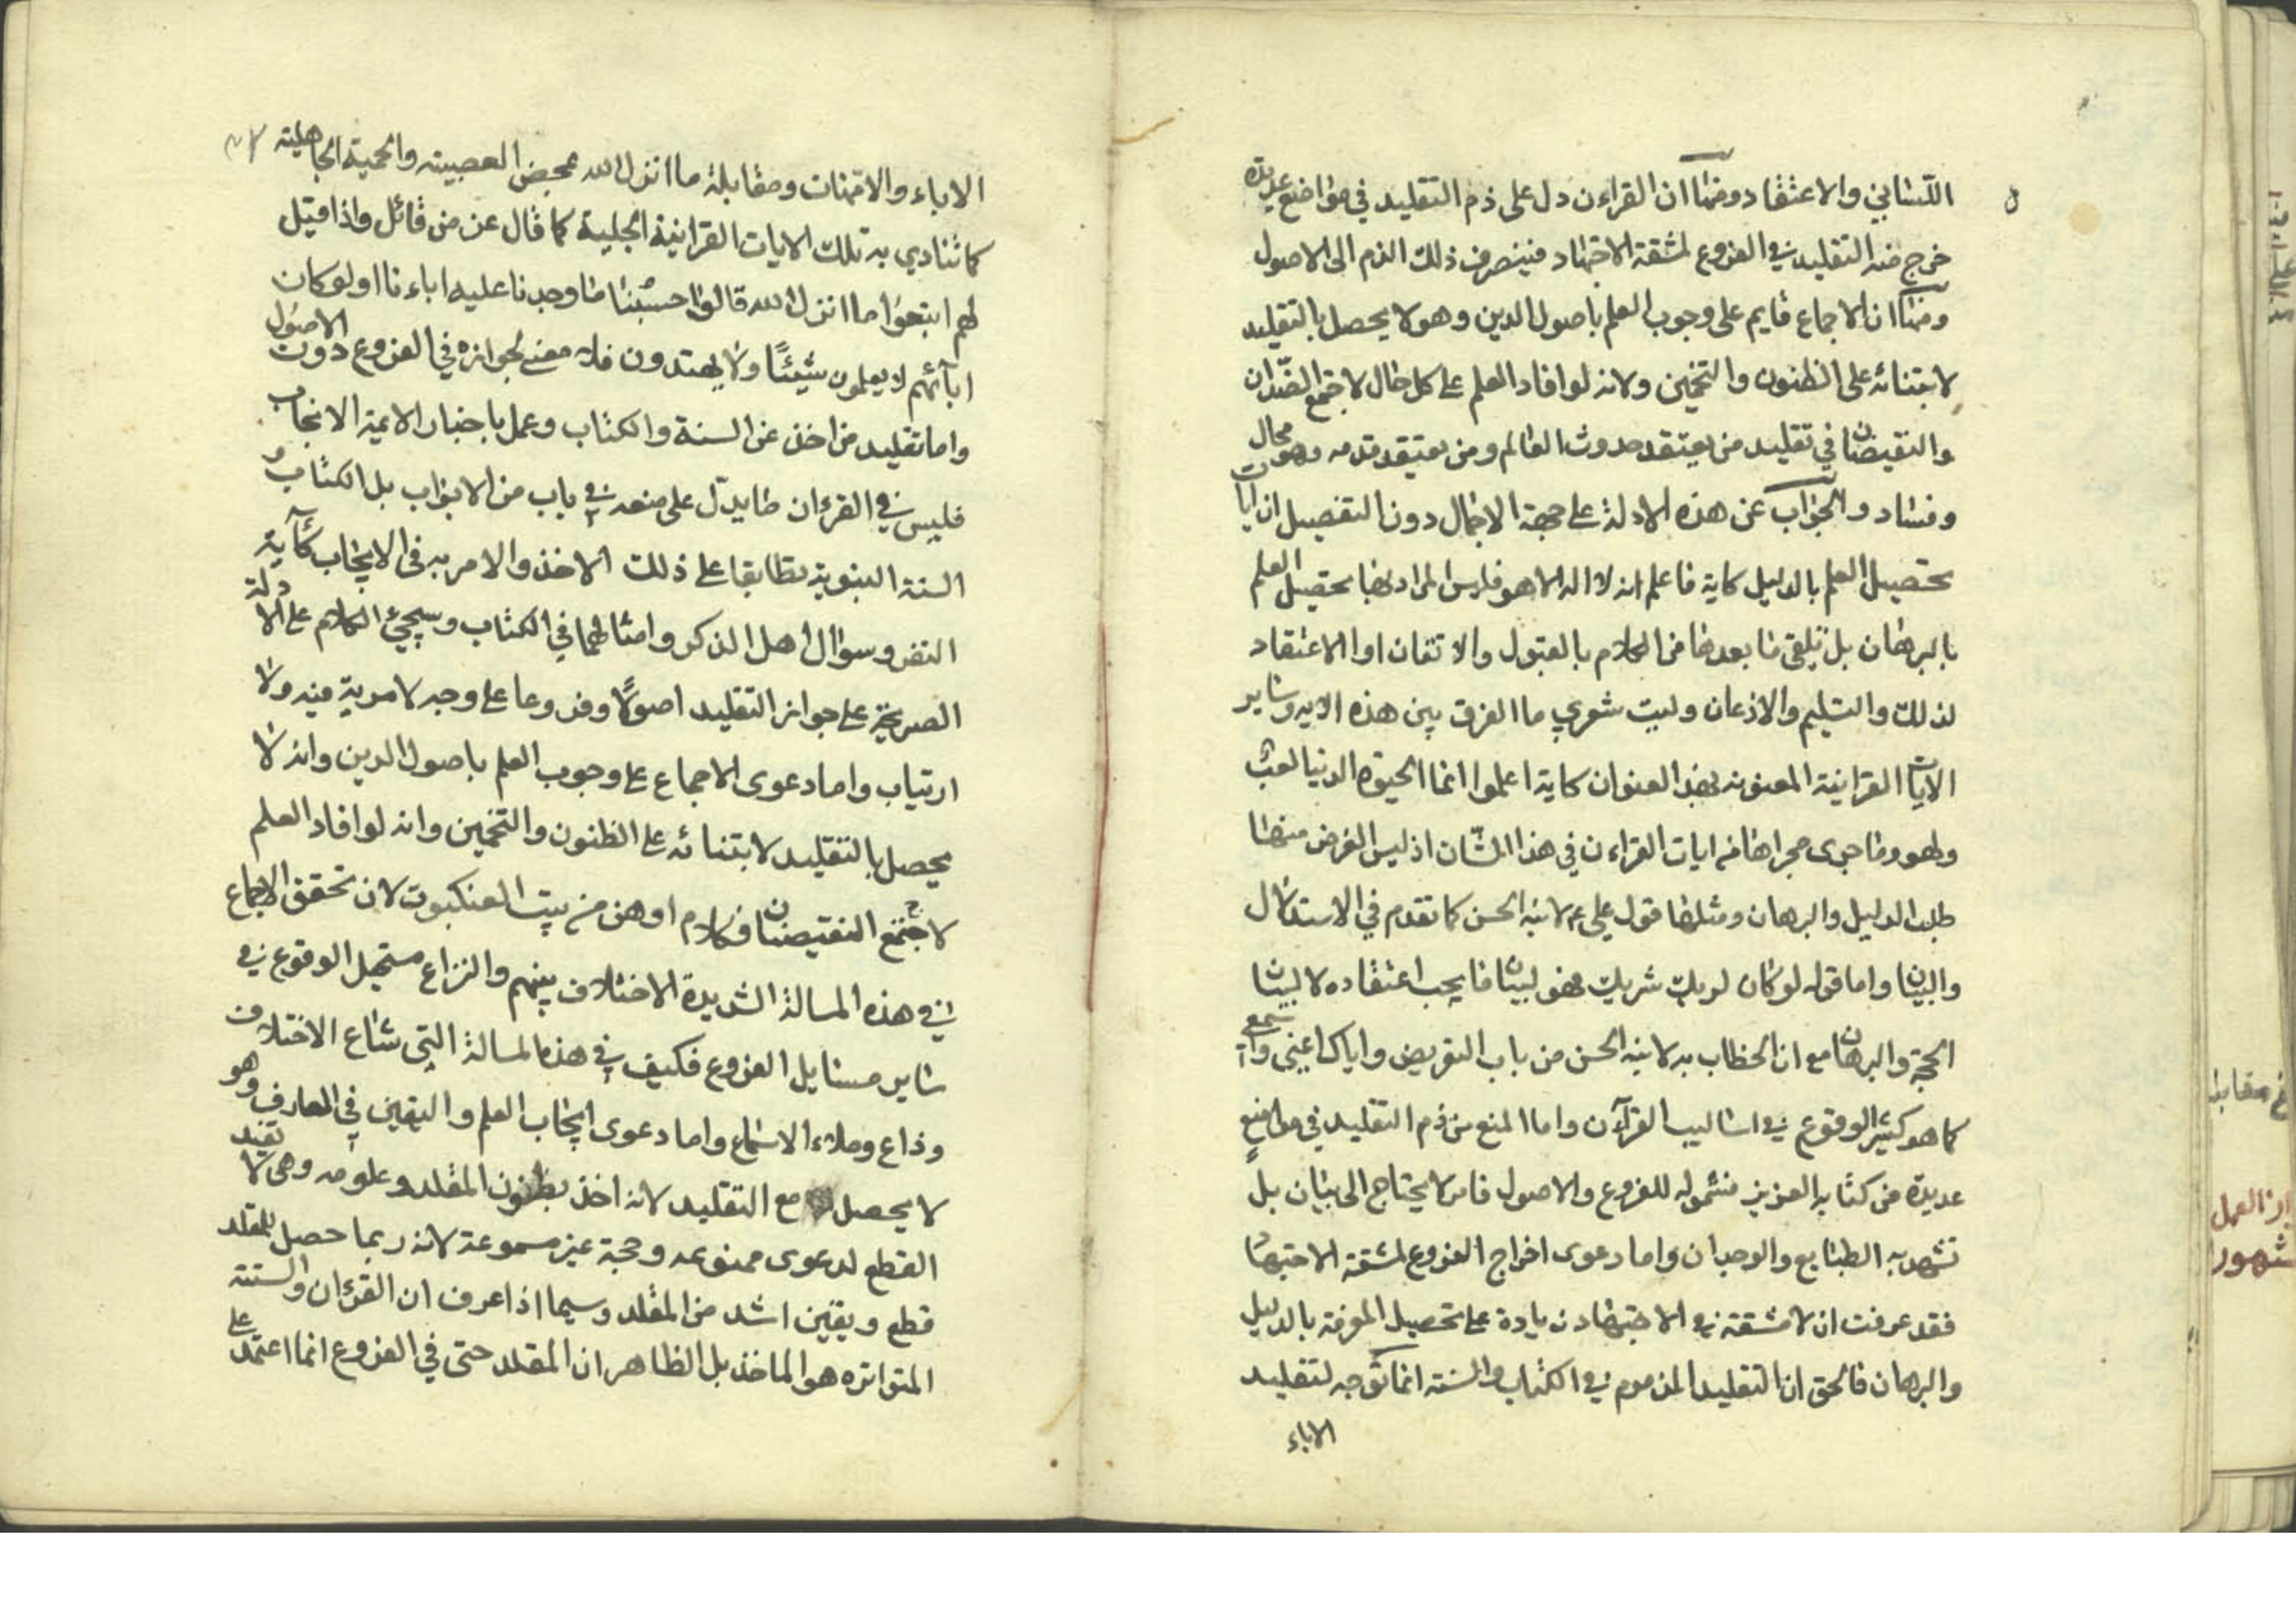 اللساني والاعتقاد ومنها ان القراءن دل على ذم التقليد في مواضع عديدة
خرج منه التقليد في الفروع لمشقة الاجتهاد فينصرف ذلك الذم الى الاصول
ومنها ان الاجماع قايم على وجوب العلم باصول الدين وهو لا يحصل بالتقليد
لابتنائه على الظنون والتخمين ولانه لو افاد العلم على كل حال لاجتمع الضدان
والنقيضان في تقليد من يعتقد حدوث العالم ومن يعتقد قدمه وهو محال
وفساد والجواب عن هذه الادلة على جهة الاجمال دون التفصيل ان ايات
تحصيل العلم بالدليل كاية فاعلم انه لا اله الا هو فليس المراد بها تحصيل العلم
بالبرهان بل تلقى ما بعدها من الكلام بالقبول والاتقان او الاعتقاد
لذلك والتسليم والاذعان وليت شعري ما الفرق بين هذه الايه وساير
الايات القرانية المعنونه بهذا العنوان كاية اعلموا انما الحيوة الدنيا لعب
ولهو وما جرى مجراها من ايات القراءن في هذا الشان اذ ليس الغرض منها
طلب الدليل والبرهان ومثلها قول علي ع لابنه الحسن كما تقدم في الاستدلال
والبيان واما قوله لو كان لربك شريك فهو لبيان ما يجب اعتقاده لا لبيان
الحجة والبرهان مع ان الخطاب به لابنه الحسن من باب التعريض واياك اعني واسمعي
كما هو كثير الوقوع في اساليب القرآن واما المنع من ذم التقليد في مواضع
عديدة من كتابه العزيز فشموله للفروع والاصول فامر لا يحتاج الى بيان بل
تشهد به الطبايع والوجدان واما دعوى اخراج الفروع لمشقة الاجتهاد
فقد عرفت ان لا مشقة في الاجتهاد زيادة على تحصيل المعرفة بالدليل
والبرهان فالحق ان التقليد المذموم في الكتاب والسنة انما توجه لتقليد
الاباء
الاباء والامهات ومقابلة ما انزل الله بمحض العصبيته والحمية الجاهليته
كما تنادي به تلك الايات القرانية الجلية كما قال عز من قائل واذا قيل
لهم اتبعوا ما انزل الله قالوا حسبنا ما وجدنا عليه اباءنا اولو كان
ابآئهم لا يعلمون شيئًا ولا يهتدون فلا معنى لجوازه في الفروع دون الاصول
واما تقليد من اخذ عن السنة والكتاب وعمل باخبار الائمة الانجاب
فليس في القرءان ما يدل على منعه في باب من الابواب بل الكتاب و
السنة النبوية تطابقا على ذلك الاخذ والامر به في الايجاب كآية
النفر وسوال اهل الذكر وامثالهما في الكتاب وسيجيء الكلام على الادلة
الصريحة على جواز التقليد اصولًا وفروعا على وجه لا مرية فيه ولا
ارتياب واما دعوى الاجماع على وجوب العلم باصول الدين وانه لا
يحصل بالتقليد لابتنائه على الظنون والتخمين وانه لو افاد العلم
لاجتمع النقيضان فكلام اوهن من بيت العنكبوت لان تحقق الاجماع
في هذه المسالة الشديدة الاختلاف بينهم والنزاع مستحيل الوقوع في
ساير مسايل الفروع فكيف في هذه المسالة التي شاع الاختلاف
وذاع وملاء الاسماع واما دعوى ايجاب العلم واليقين في المعارف وهو
لا يحصل مع التقليد لانه اخذ بظنون المقلد وعلومه وهي لا تفيد
القطع لدعوى ممنوعه وحجة غير مسموعة لانه ربما حصل للمقلد
قطع ويقين اشد من المقلد وسيما اذا عرف ان القرءان والسنته
المتواتره هو الماخذ بل الظاهر ان المقلد حتى في الفروع انما اعتمد على